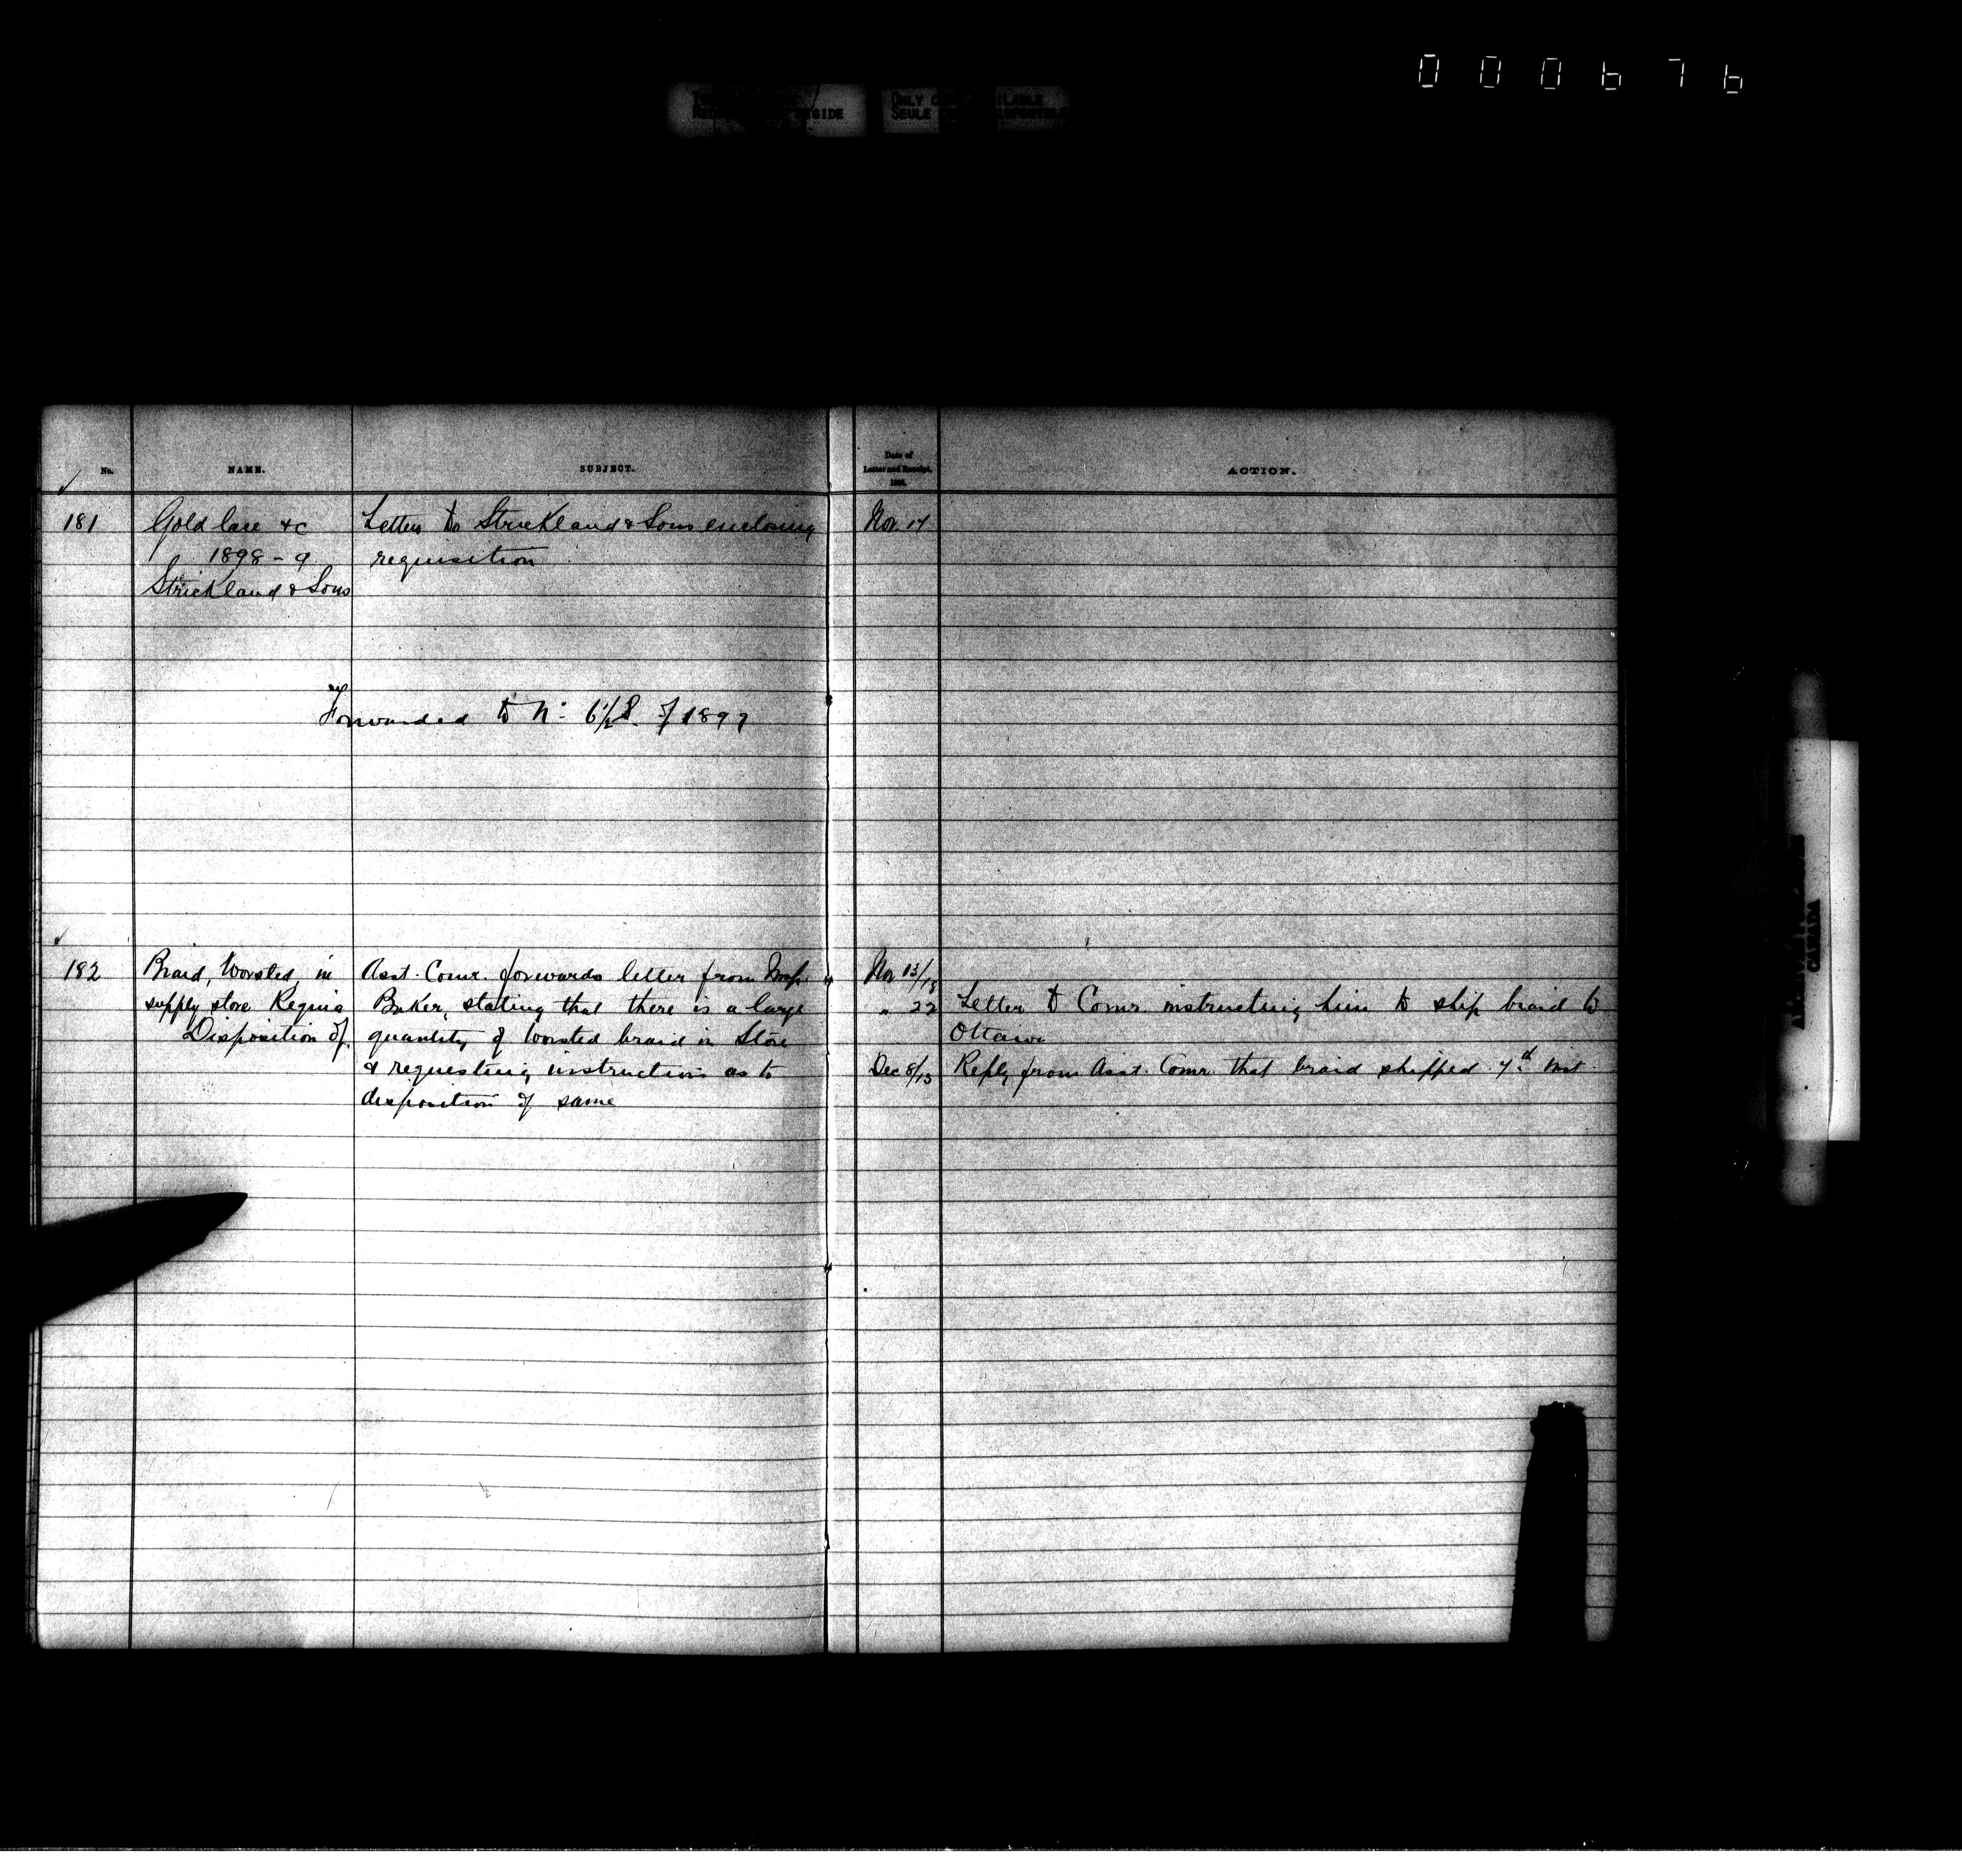 000676
ONLY
SEULE
No.
NAME.
SUBJECT.
Date of
Letter and Receipt,
189 .
ACTION.
181
Gold lace &c
1898-9
Strickland & Sons
Letter to Strickland & Sons enclosing
requisition
Nov. 17
Forwarded to No. of 1897
182
Braid, Worsted, in
supply store Regina
Disposition of.
Asst. Comr. forwards letter from Insp.
Baker, stating that there is a large
quantity of worsted braid in Store
& requesting instructions as to
disposition of same
Nov 13/18
" 22
Letter to Comr. instructing him to ship braid to
Ottawa
Dec 8/13
Reply from Asst. Comr. that braid shipped 7th inst.
CANADA